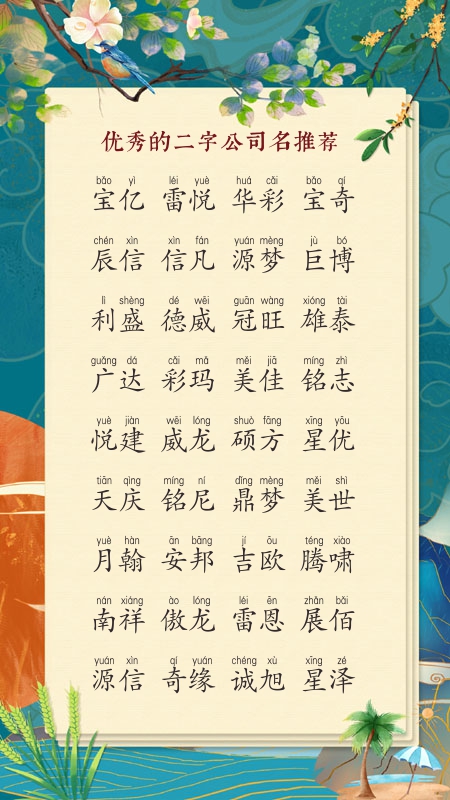 优秀的二字公司名推荐
bǎo yì léi yuè huá cǎi bǎo qí
宝亿 雷悦 华彩 宝奇
chén xìn xìn fán yuán mèng jù bó
辰信 信凡 源梦 巨博
lì shèng dé wēi guān wàng xióng tài
利盛 德威 冠旺 雄泰
guǎng dá cǎi mǎ měi jiā míng zhì
广达 彩玛 美佳 铭志
yuè jiàn wēi lóng shuò fāng xīng yōu
悦建 威龙 硕方 星优
tiān qìng míng ní dǐng mèng měi shì
天庆 铭尼 鼎梦 美世
yuè hàn ān bāng jí ōu téng xiào
月翰 安邦 吉欧 腾啸
nán xiáng ào lóng léi ēn zhǎn bǎi
南祥 傲龙 雷恩 展佰
yuán xìn qí yuán chéng xù xīng zé
源信 奇缘 诚旭 星泽